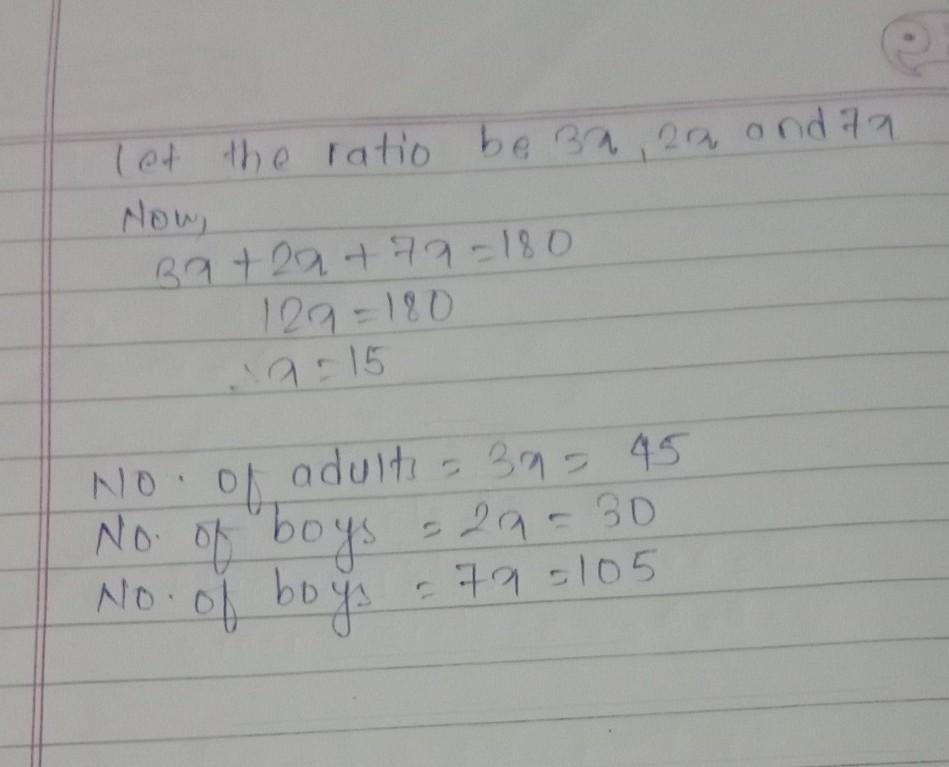 let the ratio be 3x, 2x and 7x
Now,
3x + 2x + 7x = 180
12x = 180
∴ x = 15
No. of adults = 3x = 45
No. of boys = 2x = 30
No. of boys = 7x = 105